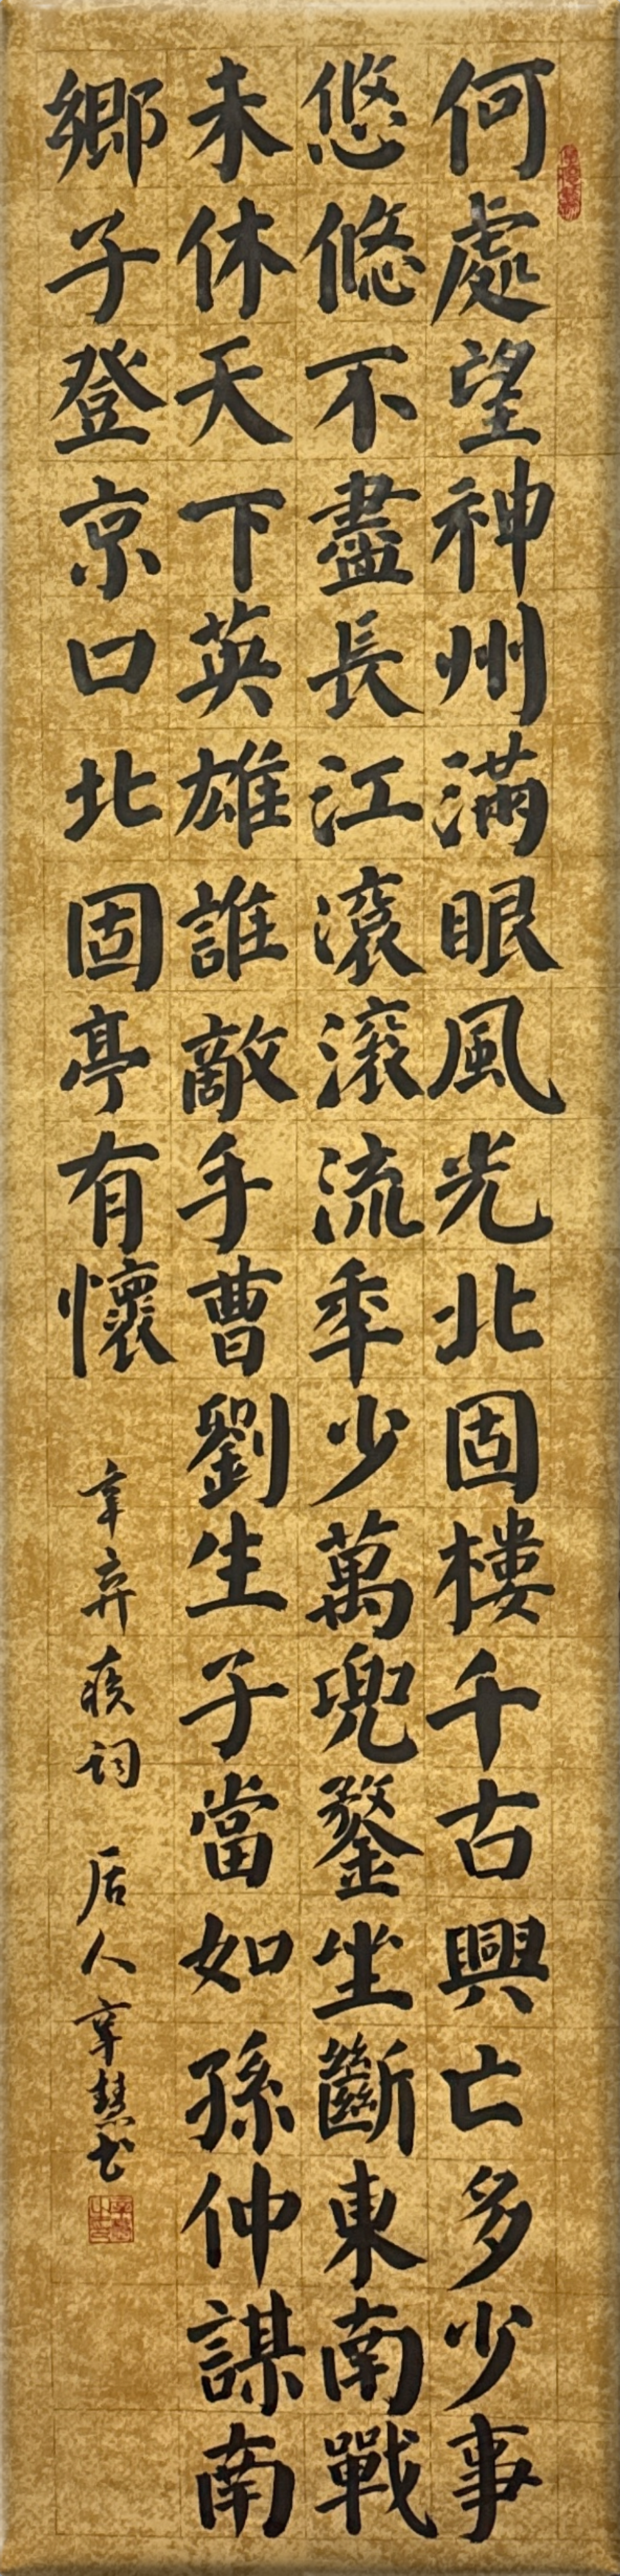 何處望神州滿眼風光北固樓千古興亡多少事
悠悠不盡長江滾滾流年少萬兜鍪坐斷東南戰
未休天下英雄誰敵手曹劉生子當如孫仲謀南
鄉子登京口北固亭有懷
辛弃疾詞 居人辛慧书